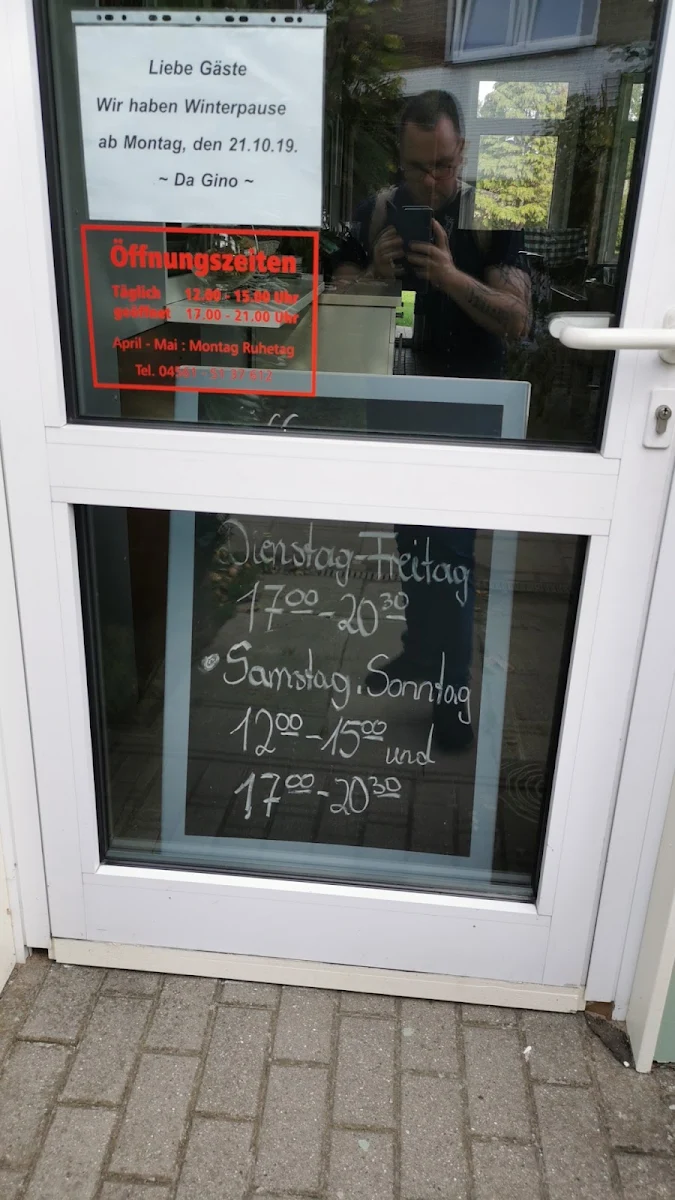 Liebe Gäste
Wir haben Winterpause
ab Montag, den 21.10.19.
~ Da Gino ~
Öffnungszeiten
Täglich 12.00 - 15.00 Uhr
geöffnet 17.00 - 21.00 Uhr
April - Mai : Montag Ruhetag
Tel.
Dienstag-Freitag
17⁰⁰-20³⁰
Samstag. Sonntag
12⁰⁰-15⁰⁰ und
17⁰⁰-20³⁰